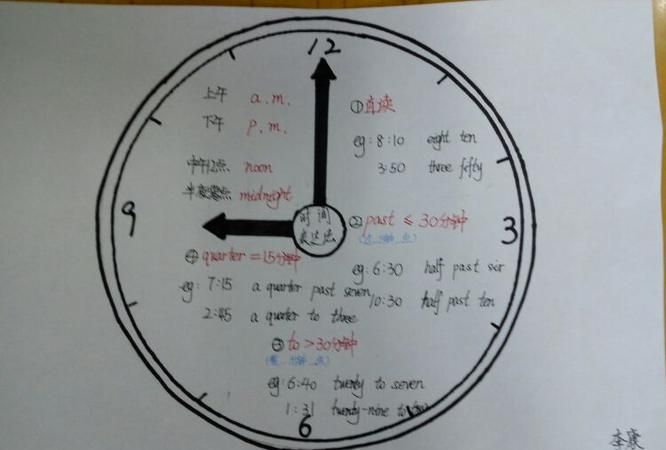 12
上午 a.m.
下午 p.m.
中午12点 noon
半夜零点 midnight
①直读
eg: 8:10 eight ten
3:50 three fifty
9
3
时间
表达法
②past ≤ 30分钟
eg: 6:30 half past six
10:30 half past ten
④quarter = 15分钟
eg: 7:15 a quarter past seven
2:45 a quarter to three
③to > 30分钟
eg: 6:40 twenty to seven
1:31 twenty-nine to two
6
李赓